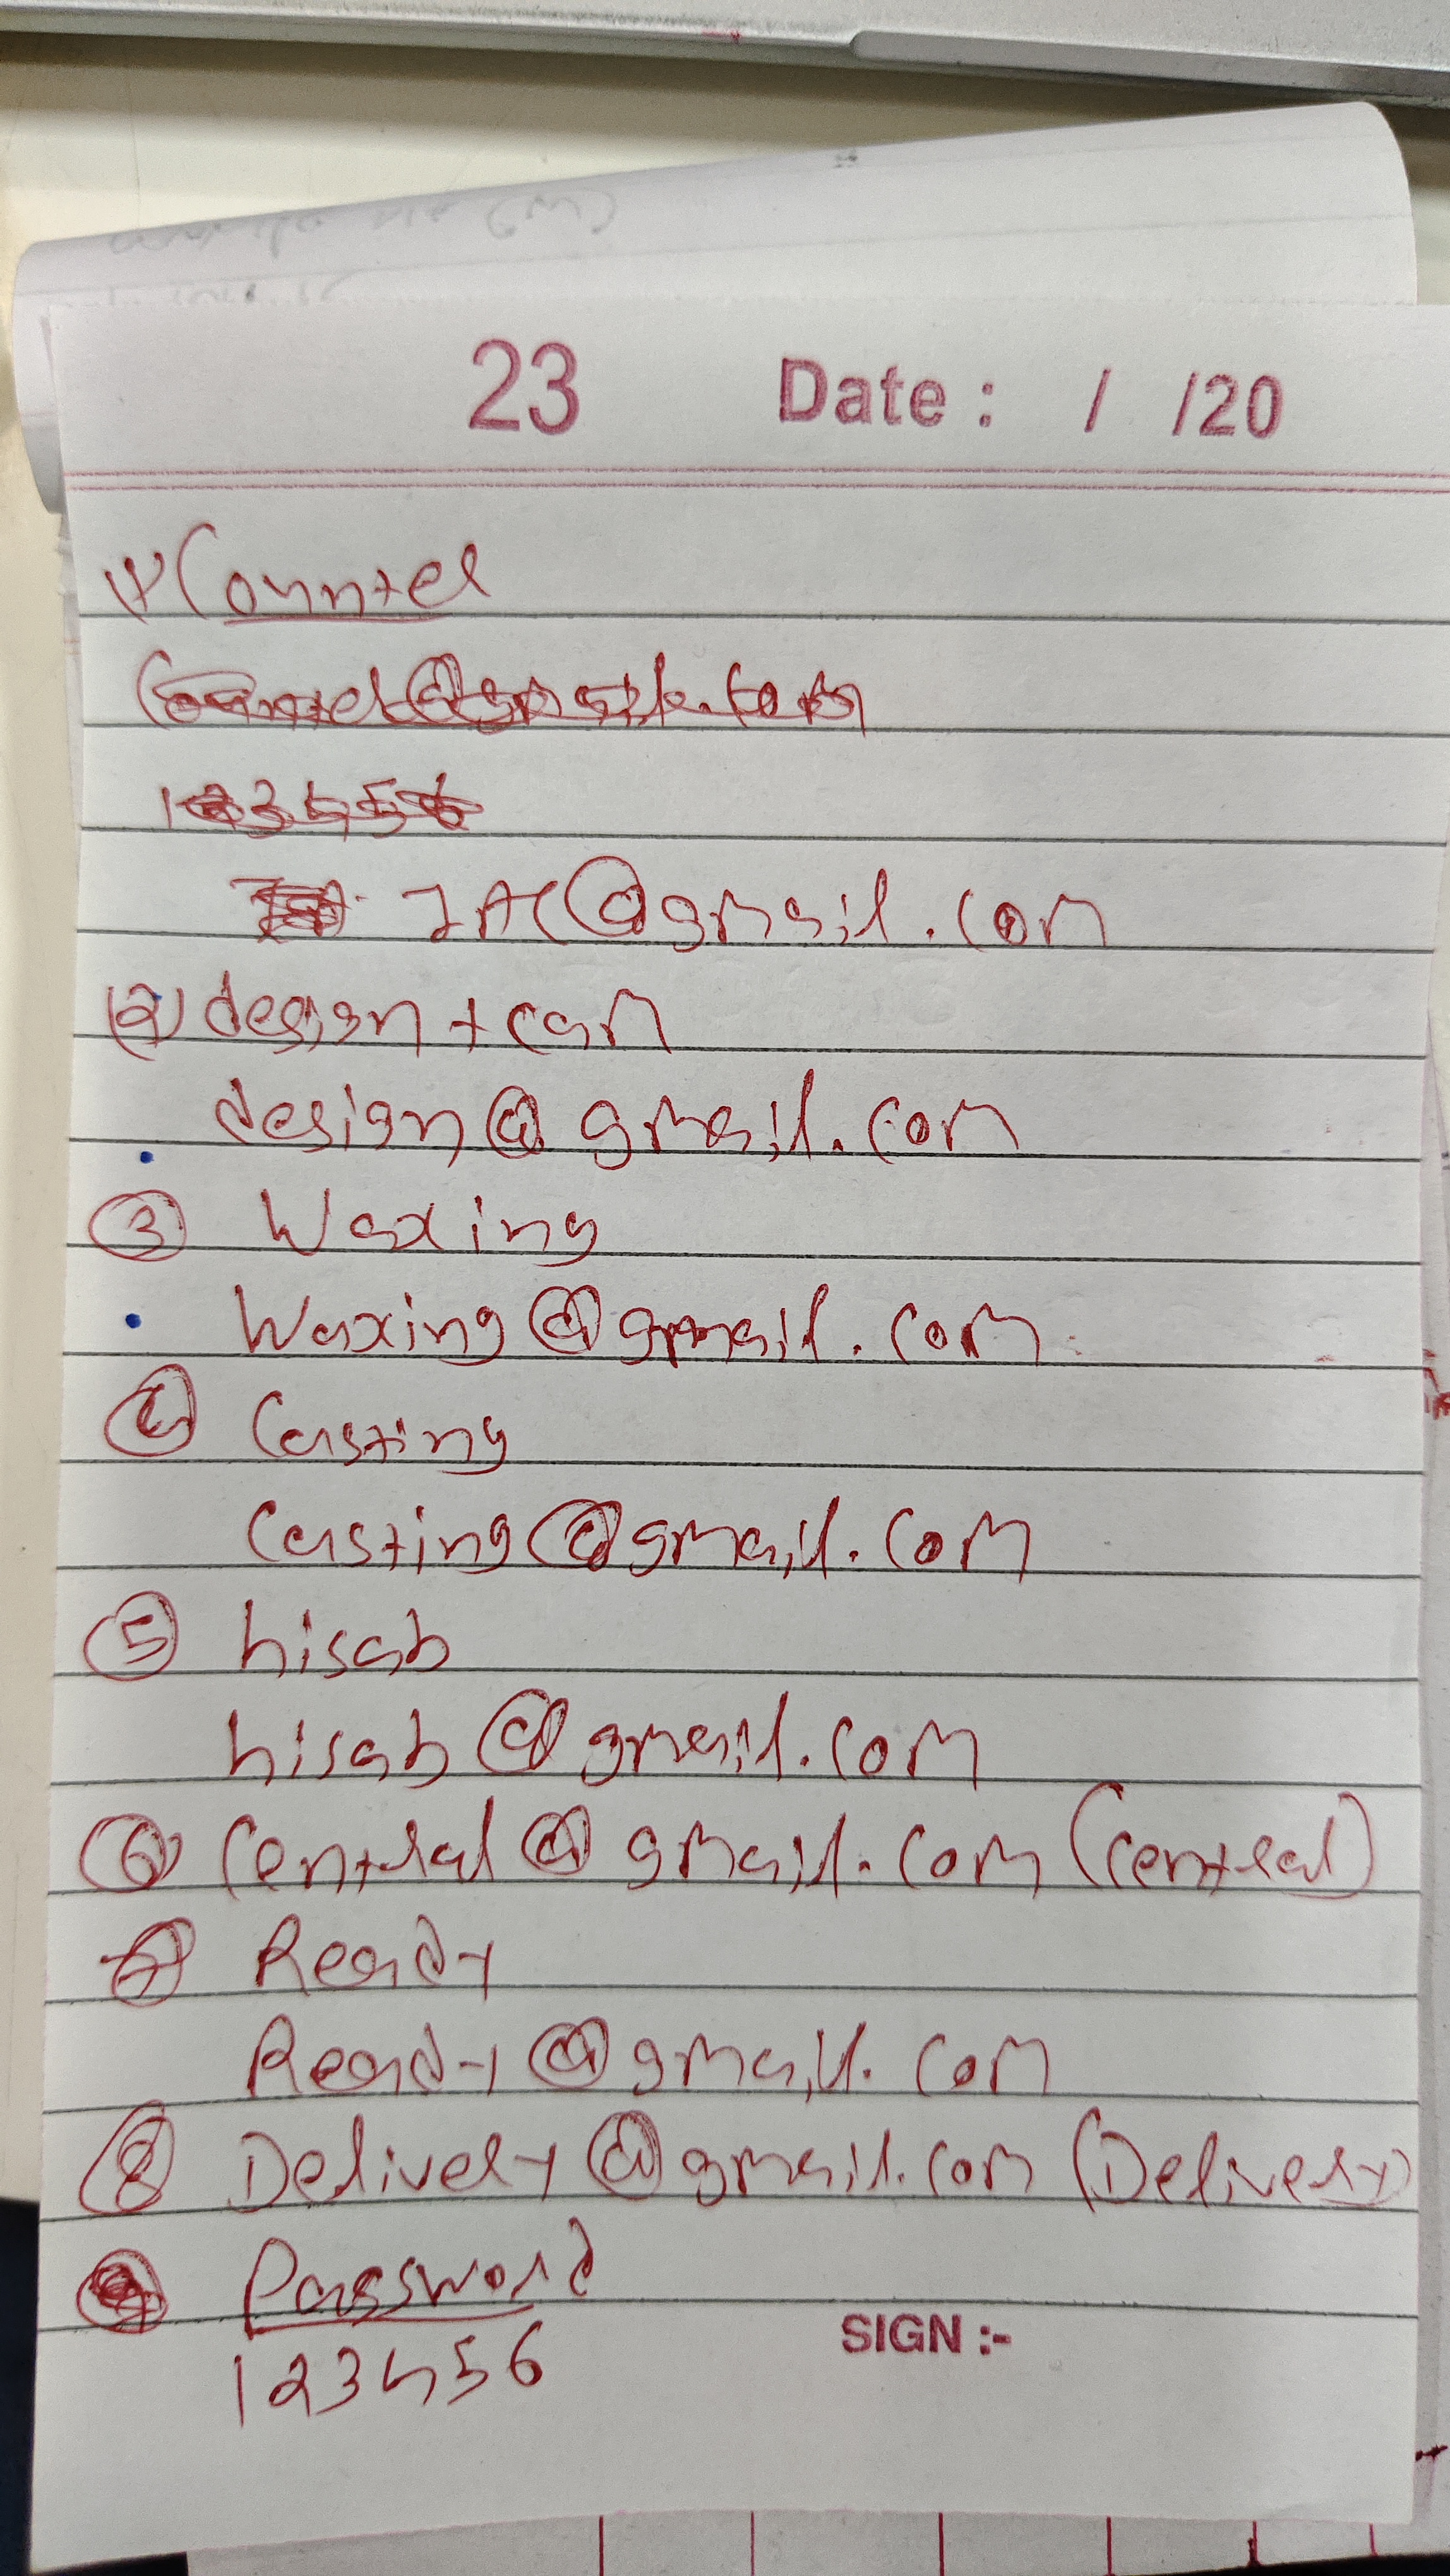 23 Date : / /20
(1) Counter
Counter@gmail.com
123456
JAC@gmail.com
(2) design + cam
design@gmail.com
3 Waxing
Waxing@gmail.com
4 Casting
Casting@gmail.com
5 hisab
hisab@gmail.com
6 Central@gmail.com (central)
7 Ready
Ready@gmail.com
8 Delivery@gmail.com (Delivery)
Password
SIGN :-
123456